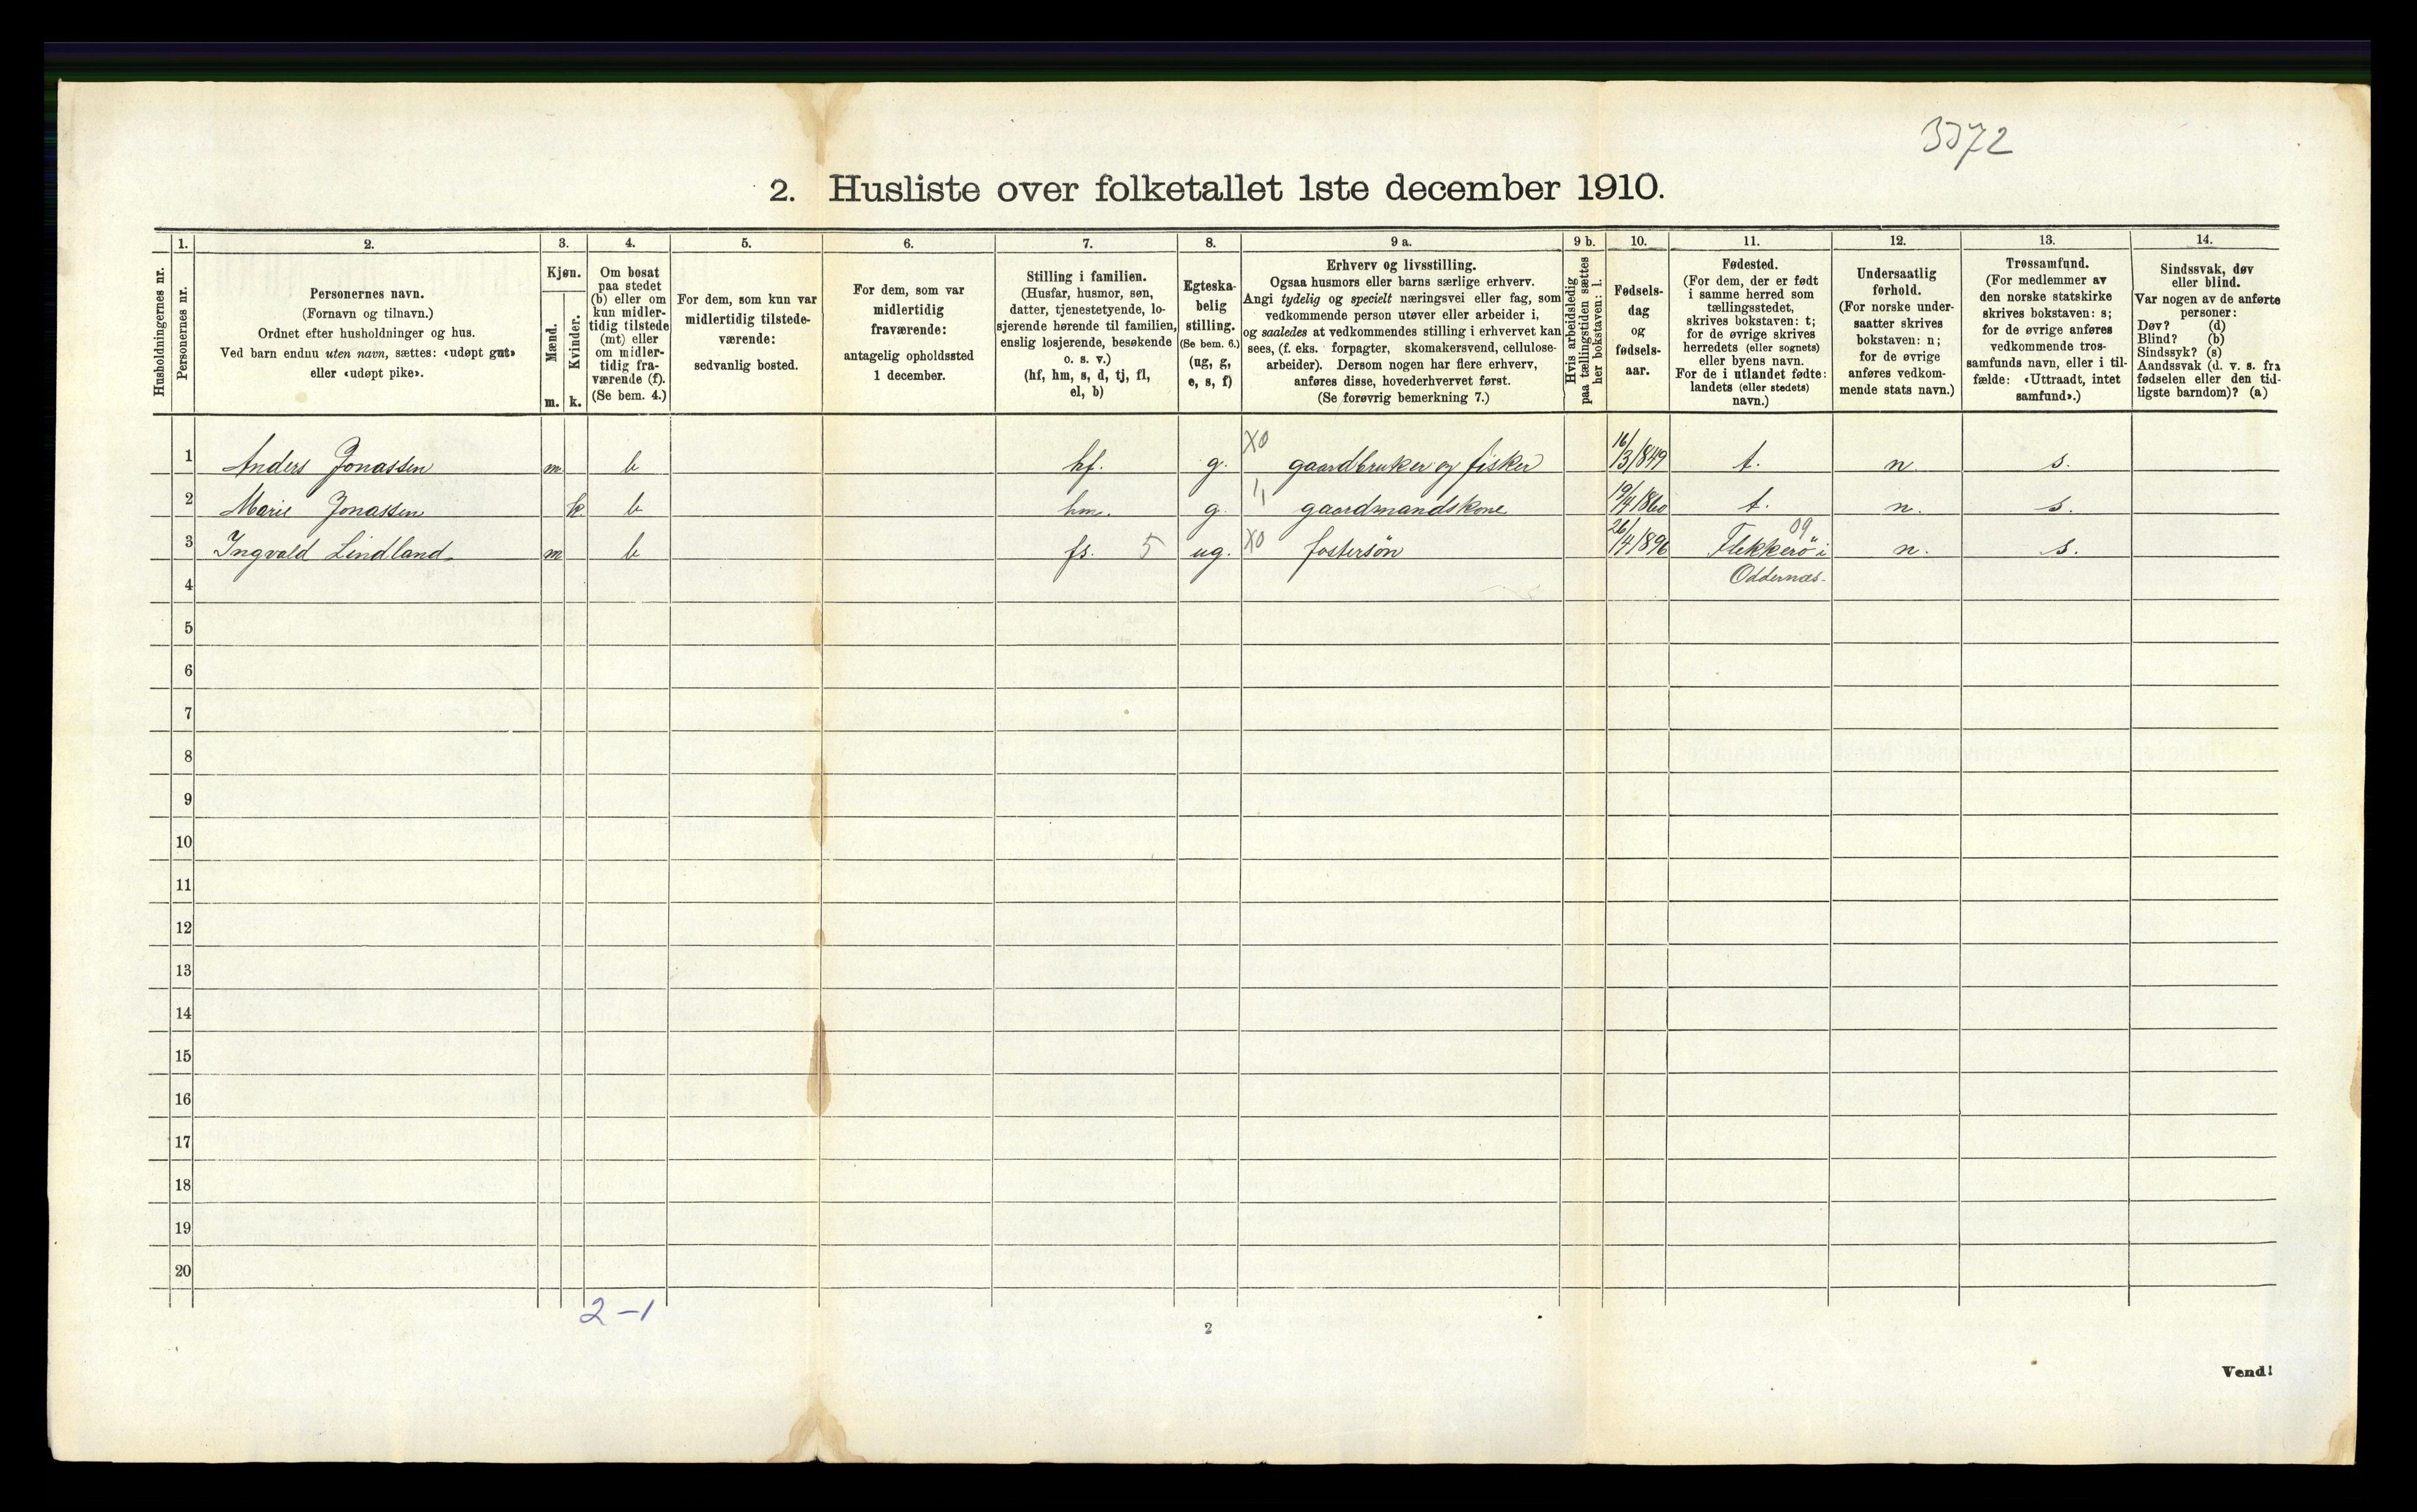 3572
2. Husliste over folketallet 1ste december 1910.
Husholdningernes nr.
1.
Personernes nr.
2.
Personernes navn.
(Fornavn og tilnavn.)
Ordnet efter husholdninger og hus.
Ved barn endnu uten navn, sættes: «udøpt gut»
eller «udøpt pike».
3.
Kjøn.
Mænd.
Kvinder.
m. k.
4.
Om bosat
paa stedet
(b) eller om
kun midler-
tidig tilstede
(mt) eller
om midler-
tidig fra-
værende (f).
(Se bem. 4.)
5.
For dem, som kun var
midlertidig tilstede-
værende:
sedvanlig bosted.
6.
For dem, som var
midlertidig
fraværende:
antagelig opholdssted
1 december.
7.
Stilling i familien.
(Husfar, husmor, søn,
datter, tjenestetyende, lo-
sjerende hørende til familien,
enslig losjerende, besøkende
o. s. v.)
(hf, hm, s, d, tj, fl,
el, b)
8.
Egteska-
belig
stilling.
(Se bem. 6.)
(ug, g,
e, s, f)
9 a.
Erhverv og livsstilling.
Ogsaa husmors eller barns særlige erhverv.
Angi tydelig og specielt næringsvei eller fag, som
vedkommende person utøver eller arbeider i,
og saaledes at vedkommendes stilling i erhvervet kan
sees, (f. eks. forpagter, skomakersvend, cellulose-
arbeider). Dersom nogen har flere erhverv,
anføres disse, hovederhvervet først.
(Se forøvrig bemerkning 7.)
9 b.
Hvis arbeidsledig
paa tællingstiden sættes
her bokstaven: l.
10.
Fødsels-
dag
og
fødsels-
aar.
11.
Fødested.
(For dem, der er født
i samme herred som
tællingsstedet,
skrives bokstaven: t;
for de øvrige skrives
herredets (eller sognets)
eller byens navn.
For de i utlandet fødte:
landets (eller stedets)
navn.)
12.
Undersaatlig
forhold.
(For norske under-
saatter skrives
bokstaven: n;
for de øvrige
anføres vedkom-
mende stats navn.)
13.
Trossamfund.
(For medlemmer av
den norske statskirke
skrives bokstaven: s;
for de øvrige anføres
vedkommende tros-
samfunds navn, eller i til-
fælde: «Uttraadt, intet
samfund».)
14.
Sindssvak, døv
eller blind.
Var nogen av de anførte
personer:
Døv? (d)
Blind? (b)
Sindssyk? (s)
Aandssvak (d. v. s. fra
fødselen eller den tid-
ligste barndom)? (a)
1 Anders Jonassen m b hf. g. X0 gaardbruker og fisker 16/3 1849 t. n. s.
2 Marie Jonassen k b hm. g. gaardmandskone 19/4 1860 t. n. s.
3 Ingvald Lindland m b fs. 5 ug. X0 fostersøn 26/4 1896 Flekkerö i 09 n. s.
4 Oddernæs.
5
6
7
8
9
10
11
12
13
14
15
16
17
18
19
20
2-1
2
Vend!